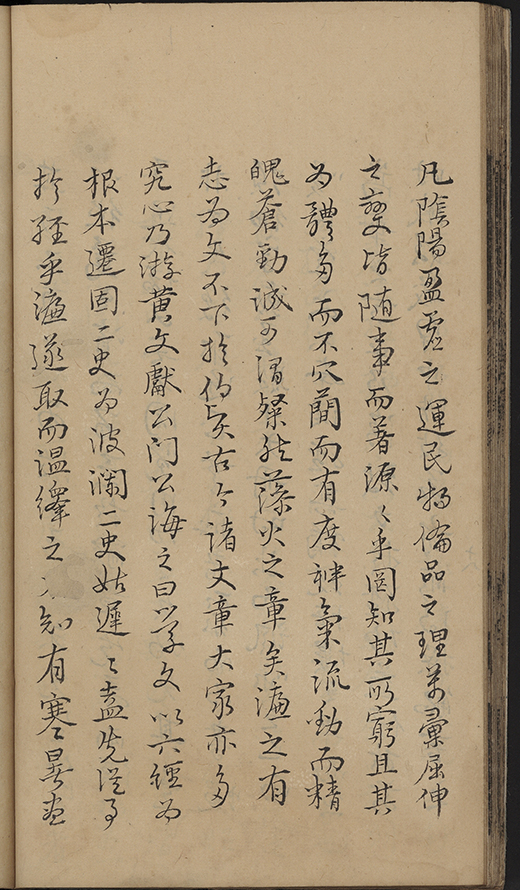 凡陰陽盈虛之運民物備品之理萬彙屈伸
之變皆隨事而著源〻乎罔知其所窮且其
為體多而不冗簡而有度神氣流動而精
魄蒼勁誠可謂粲然藻火之章矣濂之有
志為文不下於伯炎古今諸文章大家亦多
究心乃游黃文獻公門公誨之曰學文以六經為
根本遷固二史為波瀾二史姑遲〻盍先從事
於經乎濂遂取而溫繹之不知有寒暑晝